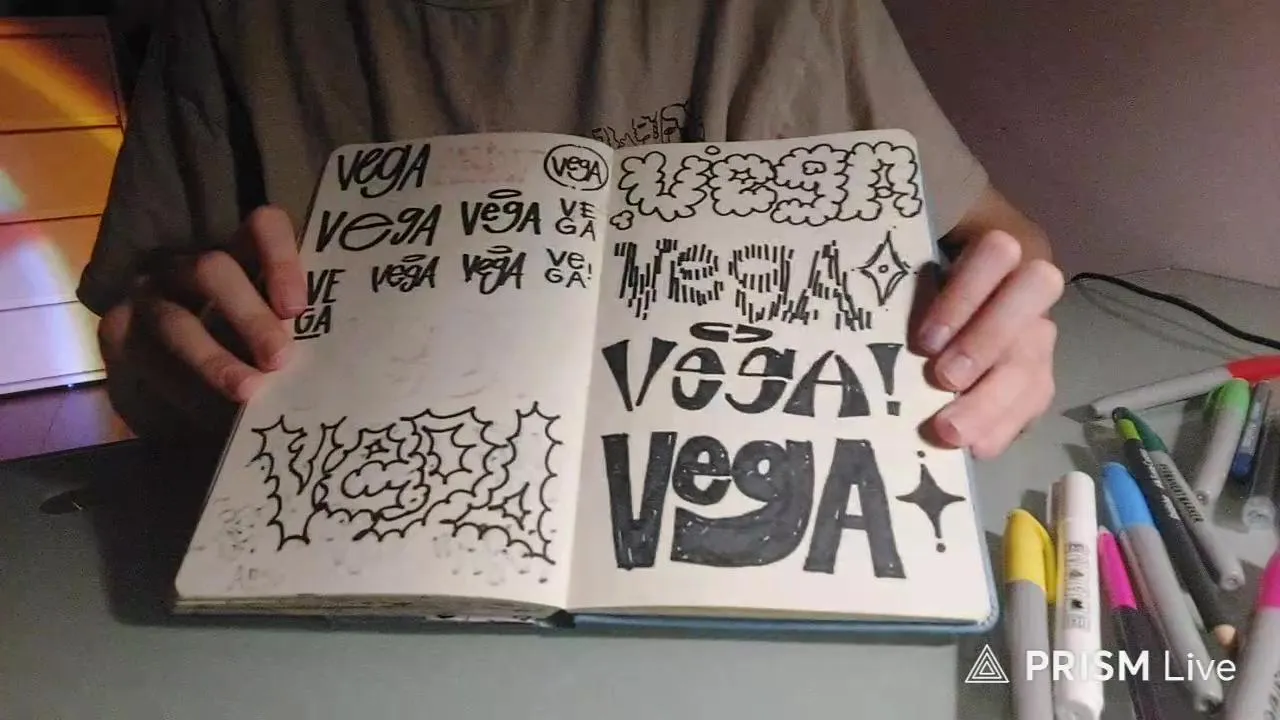 VegA
VegA
VegA
VegA
VE
GA
VE
GA
VegA
VegA
Ve!
GA!
Vega
vega
VegA
VegA!
VegA
PRISM Live